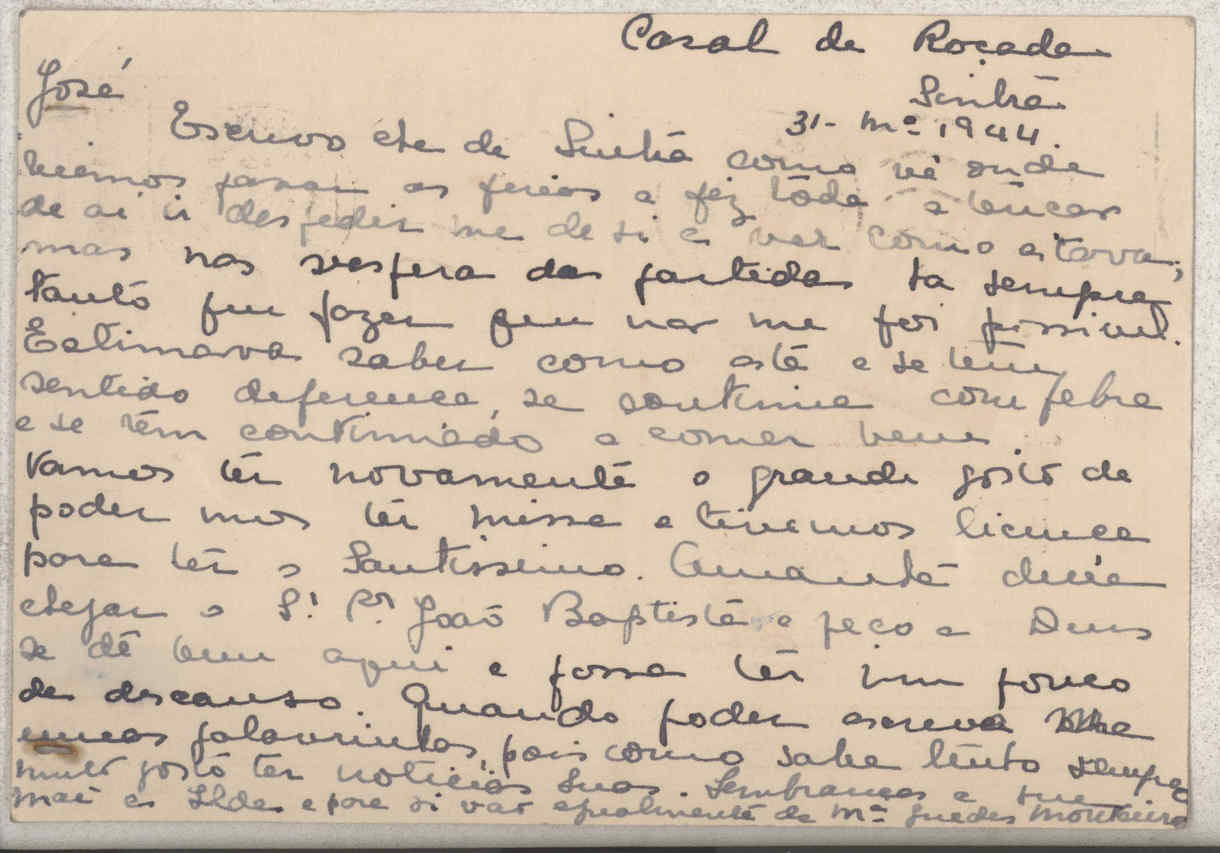 Casal de Roçada
Sintra
31- Mº 1944.
José
Escrevo lhe de Sintra como vê onde
viemos passar as ferias e fiz tôda a tenção
de aí ir despedir me de si e ver como estava;
mas nas vesfera da partida ha sempre
tanto que fazer que não me foi possivel.
Estimava saber como está e se têm
sentido deferença, se continua com febre
e se têm continuado a comer bem
Vamos têr novamente o grande gôsto de
poder mos têr missa e tivemos licença
para têr o Santissimo. Amanhã devia
chegar o Sr. Pr. João Baptista e peço a Deus
se dê bem aqui e possa têr um pouco
de descanso. Quando poder escreva
umas palavrinhas, pois como sabe tenho sempre
muito gôsto ter noticias suas. Lembranças a sua
mãe e Ilda e para si vão egualmente da Mª Guedes Monteiro